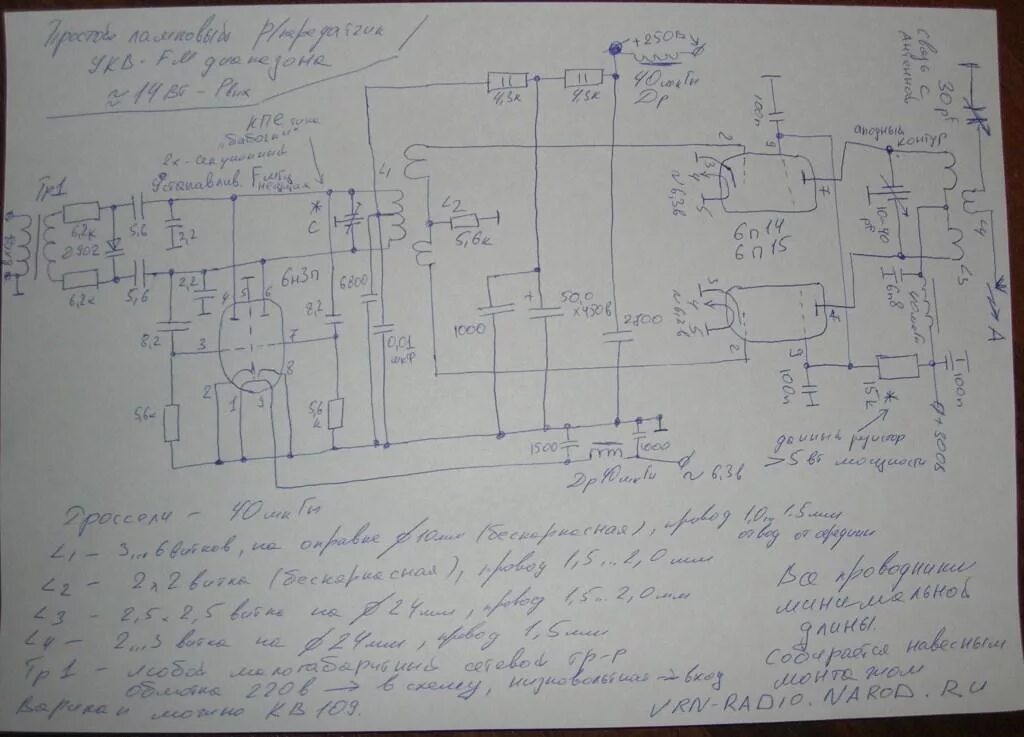 Простой ламповый Р/передатчик
УКВ-FM диапазона
≈ 14Вт - Рвых
КПЕ типа
"бабочки"
2х-секционный
Устанавлив. F МГц
* C
Тр1
6,2к
5,6
2,2
Д902
6,2к
5,6
2,2
8,2
4 5 6
6н3п
3
7
2
1
9
8
5,6к
8,2
5,6
к
6800
0,01
мкФ
L1
L2
5,6к
4,3к
4,3к
+250В
40мкГн
Др
1000
+ 50,0
x450В
2200
1500
Др 40мкГн
~6,3в
2
100п
9
3
4
5
~6,3в
7
6п14
6п15
3
4
5
~6,3в
2
9
100п
Связь с
Антенной
30pF
анодный
контур
10-40
pF
L4
L3
6п8
А
15к
*
100п
+300в
данный резистор
>5 Вт мощности
Дроссели - 40мкГн
L1 - 3...6 витков, на оправке ∅10мм (бескаркасная), провод 1,0... 1.5мм
отвод от середины
L2 - 2х2 витка (бескаркасная), провод 1,5...2,0мм
L3 - 2,5 x 2,5 витка на ∅24мм, провод 1,5...2,0мм
L4 - 2...3 витка на ∅24мм, провод 1,5мм
Тр1 - любой малогабаритный сетевой тр-р
обмотка 220в → в схему, низковольтная → вход
Варикап можно КВ109.
Все проводники
минимальной
длины.
Собирается навесным
монтажом
VRN-RADIO.NAROD.RU